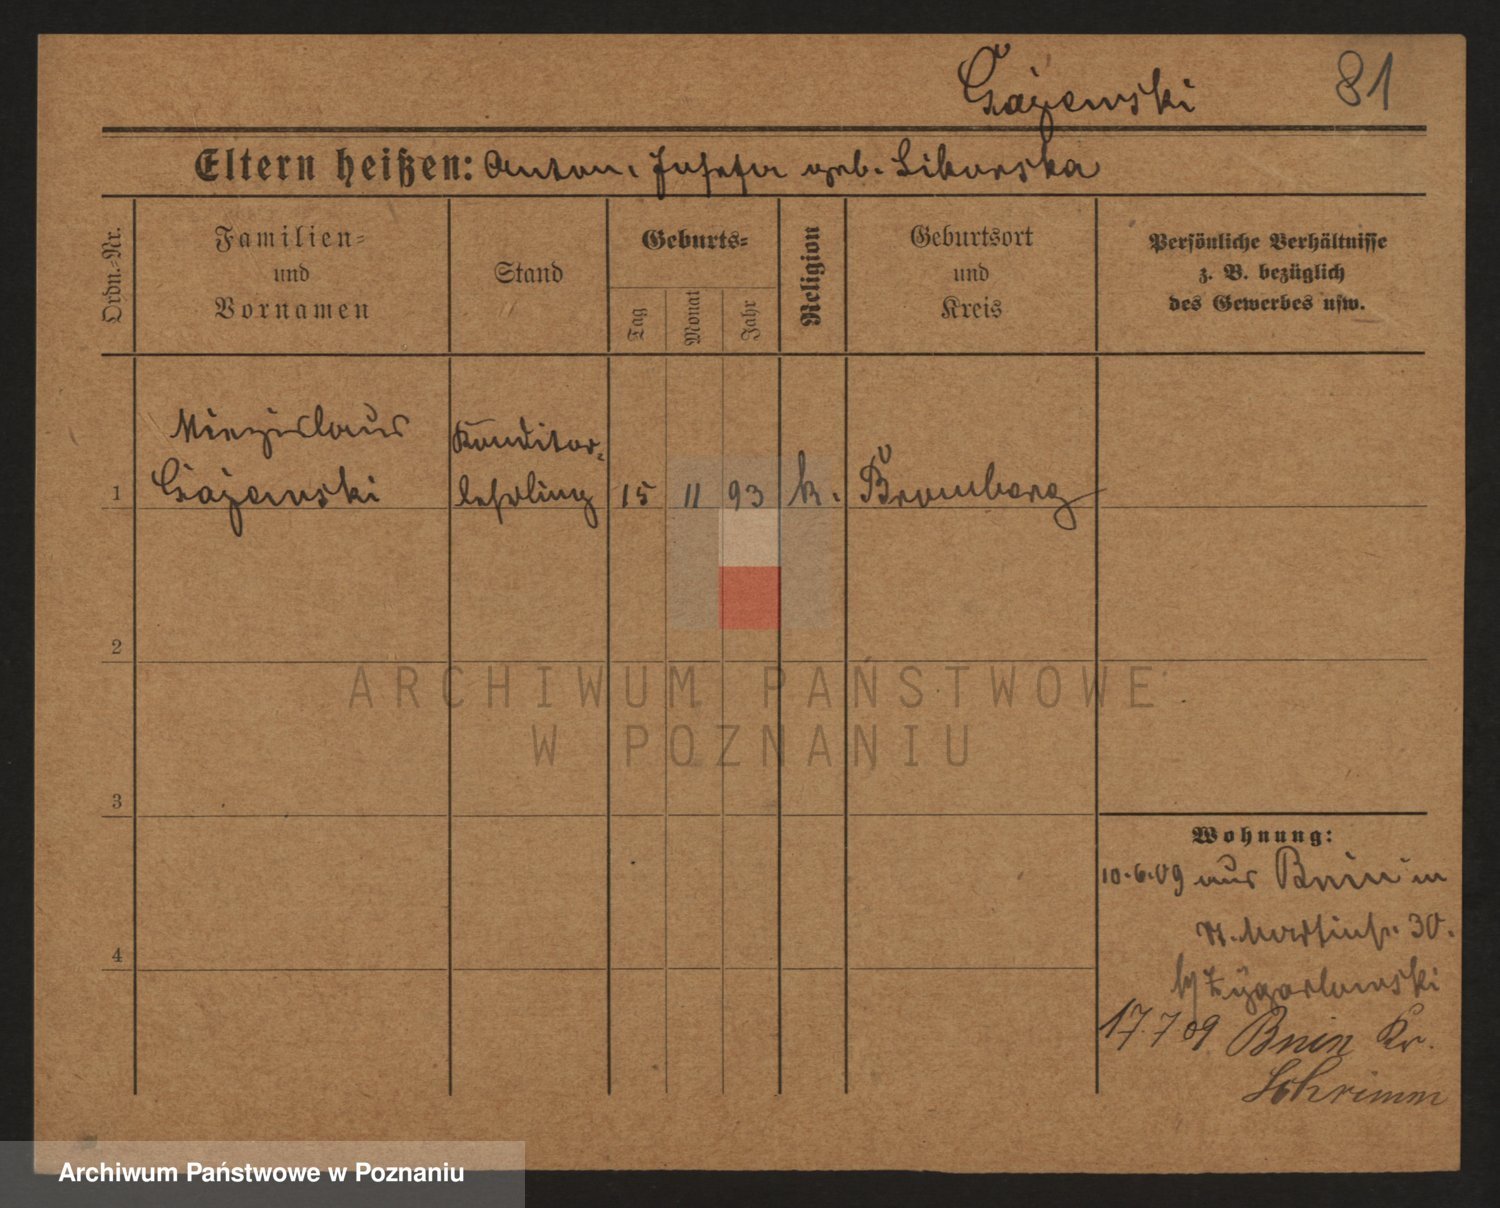 Gażewski
81
Eltern heißen: Anton. Josefa geb. Sikorska
Ordn.-Nr.
Familien-
und
Vornamen
Stand
Geburts-
Tag
Monat
Jahr
Religion
Geburtsort
und
Kreis
Persönliche Verhältnisse
z. B. bezüglich
des Gewerbes usw.
Miezislaus
Konditor-
1 Gażewski lehrling 15 11 93 k. Bromberg
2
ARCHIWUM PAŃSTWOWE
W POZNANIU
3
Wohnung:
10.6.09 aus Bnin in
St. Martinstr. 30.
4
17.7 09 Bnin Kr.
Schrimm
Archiwum Państwowe w Poznaniu